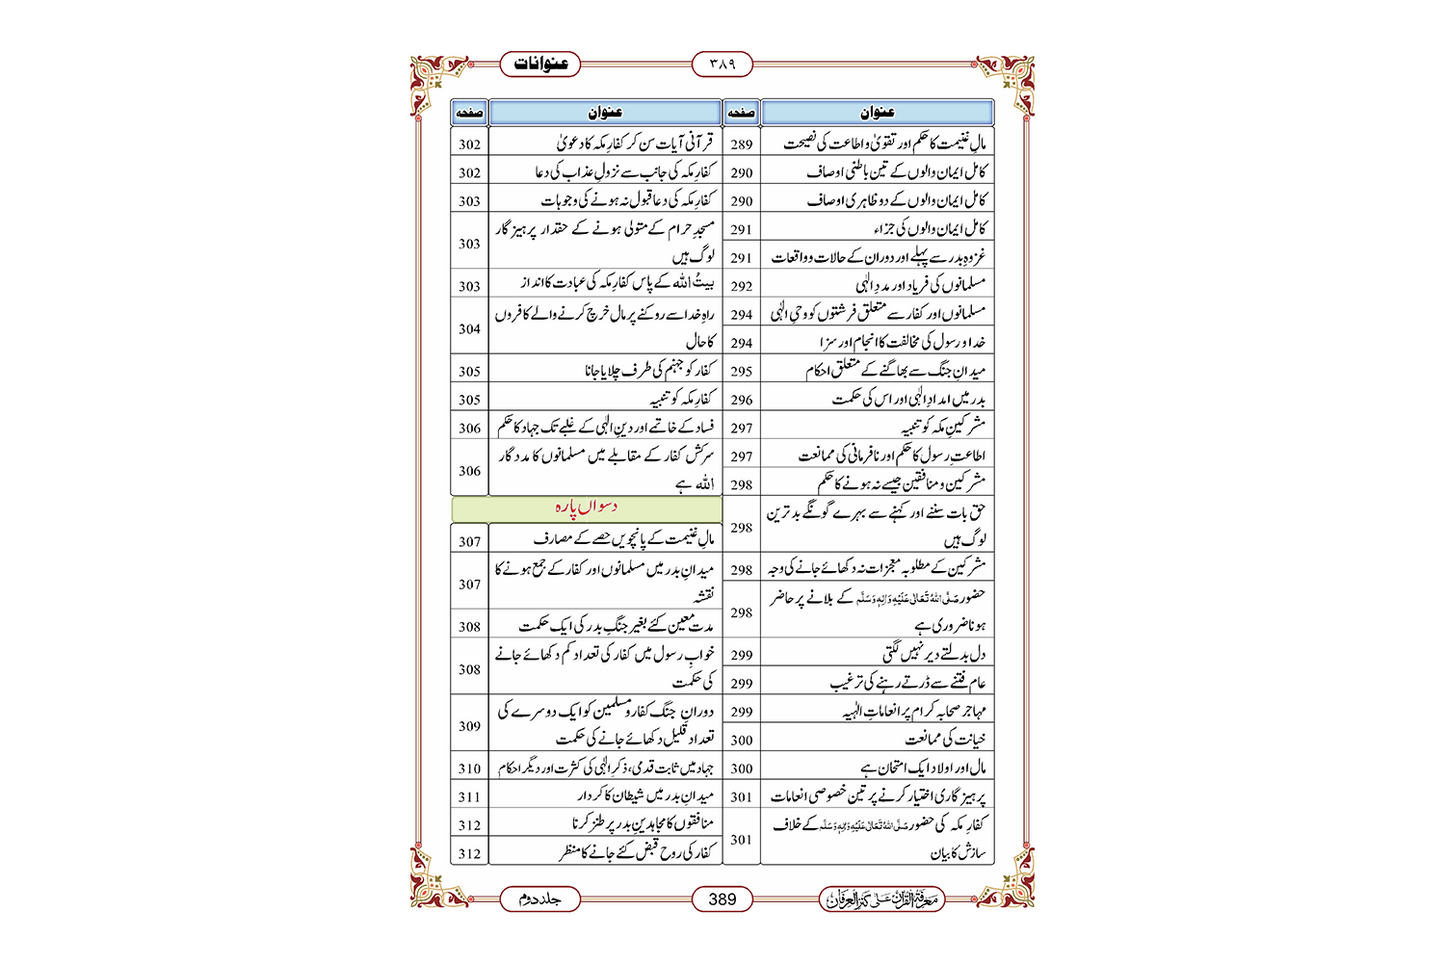 عنوانات
۳۸۹
عنوان صفحہ
مالِ غنیمت کا حکم اور تقویٰ و اطاعت کی نصیحت 289
کامل ایمان والوں کے تین باطنی اوصاف 290
کامل ایمان والوں کے دو ظاہری اوصاف 290
کامل ایمان والوں کی جزاء 291
غزوہِ بدر سے پہلے اور دوران کے حالات و واقعات 291
مسلمانوں کی فریاد اور مددِ الٰہی 292
مسلمانوں اور کفار سے متعلق فرشتوں کو وحیِ الٰہی 294
خدا و رسول کی مخالفت کا انجام اور سزا 294
میدانِ جنگ سے بھاگنے کے متعلق احکام 295
بدر میں امدادِ الٰہی اور اس کی حکمت 296
مشرکینِ مکہ کو تنبیہ 297
اطاعتِ رسول کا حکم اور نافرمانی کی ممانعت 297
مشرکین و منافقین جیسے نہ ہونے کا حکم 298
حق بات سننے اور کہنے سے بہرے گونگے بدترین
لوگ ہیں 298
مشرکین کے مطلوبہ معجزات نہ دکھائے جانے کی وجہ 298
حضور صَلَّی اللہُ تَعَالٰی عَلَیْہِ وَاٰلِہٖ وَسَلَّم کے بلانے پر حاضر
ہونا ضروری ہے 298
دل بدلتے دیر نہیں لگتی 299
عام فتنے سے ڈرتے رہنے کی ترغیب 299
مہاجر صحابہ کرام پر انعاماتِ الٰہیہ 299
خیانت کی ممانعت 300
مال اور اولاد ایک امتحان ہے 300
پرہیزگاری اختیار کرنے پر تین خصوصی انعامات 301
کفارِ مکہ کی حضور صَلَّی اللہُ تَعَالٰی عَلَیْہِ وَاٰلِہٖ وَسَلَّم کے خلاف
سازش کا بیان 301
عنوان صفحہ
قرآنی آیات سن کر کفارِ مکہ کا دعویٰ 302
کفارِ مکہ کی جانب سے نزولِ عذاب کی دعا 302
کفارِ مکہ کی دعا قبول نہ ہونے کی وجوہات 303
مسجدِ حرام کے متولی ہونے کے حقدار پرہیزگار
لوگ ہیں 303
بیتُ اللہ کے پاس کفارِ مکہ کی عبادت کا انداز 303
راہِ خدا سے روکنے پر مال خرچ کرنے والے کافروں
کا حال 304
کفار کو جہنم کی طرف چلایا جانا 305
کفارِ مکہ کو تنبیہ 305
فساد کے خاتمے اور دینِ الٰہی کے غلبے تک جہاد کا حکم 306
سرکش کفار کے مقابلے میں مسلمانوں کا مددگار
اللہ ہے 306
دسواں پارہ
مالِ غنیمت کے پانچویں حصے کے مصارف 307
میدانِ بدر میں مسلمانوں اور کفار کے جمع ہونے کا
نقشہ 307
مدت معین کئے بغیر جنگِ بدر کی ایک حکمت 308
خوابِ رسول میں کفار کی تعداد کم دکھائے جانے
کی حکمت 308
دورانِ جنگ کفار و مسلمین کو ایک دوسرے کی
تعداد قلیل دکھائے جانے کی حکمت 309
جہاد میں ثابت قدمی، ذکرِ الٰہی کی کثرت اور دیگر احکام 310
میدانِ بدر میں شیطان کا کردار 311
منافقوں کا مجاہدینِ بدر پر طنز کرنا 312
کفار کی روح قبض کئے جانے کا منظر 312
معرفۃ القرآن علیٰ کنز العرفان
389
جلد دوم